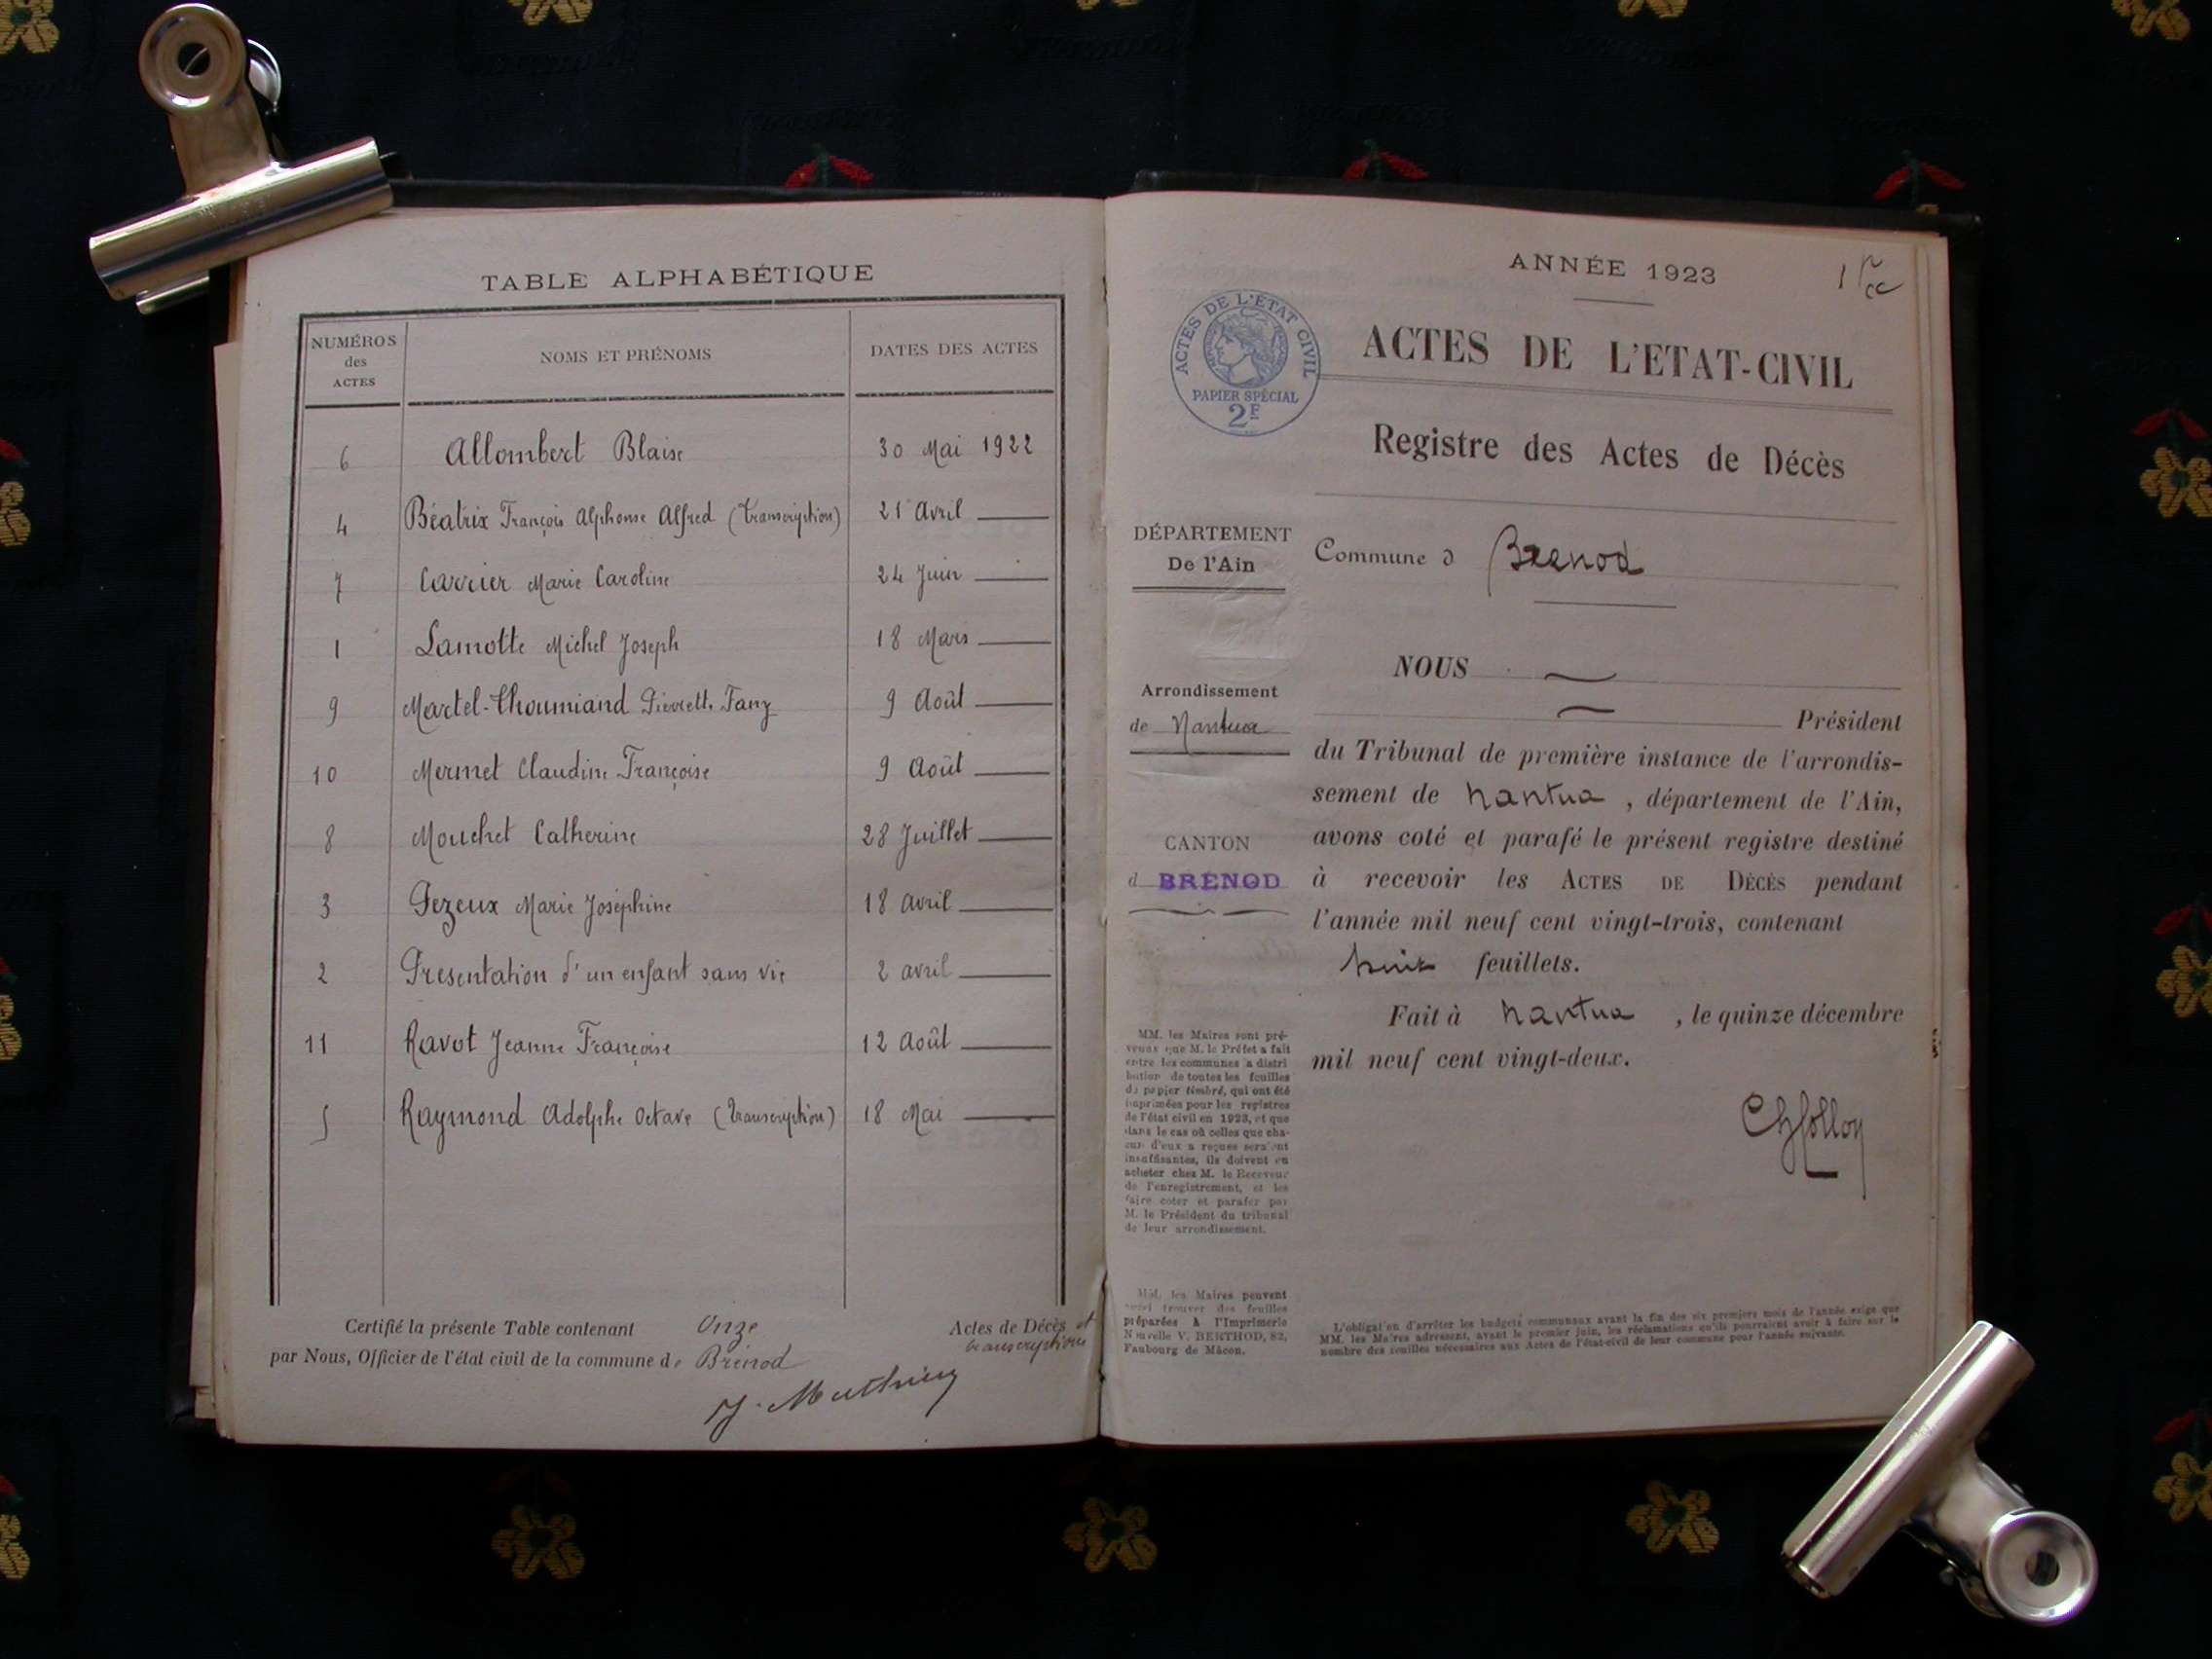 TABLE ALPHABÉTIQUE
NUMÉROS
des
ACTES
NOMS ET PRÉNOMS
DATES DES ACTES
6 Allombert Blaise 30 Mai 1922
4 Béatrix François Alphonse Alfred (transcription) 21 Avril
7 Carrier Marie Caroline 24 Juin
1 Lamotte Michel Joseph 18 Mars
9 Martel-Thoumiand Pierrette Fany 9 Août
10 Mermet Claudine Françoise 9 Août
8 Mouchet Catherine 28 Juillet
3 Pezeux Marie Joséphine 18 avril
2 Présentation d'un enfant sans vie 2 avril
11 Ravot Jeanne Françoise 12 Août
5 Raymond Adolphe Octave (transcription) 18 Mai
Certifié la présente Table contenant Onze Actes de Décès et
transcriptions
par Nous, Officier de l'état civil de la commune de Brénod
ANNÉE 1923
ACTES DE L'ÉTAT CIVIL
PAPIER SPÉCIAL
2F
ACTES DE L'ETAT-CIVIL
Registre des Actes de Décès
DÉPARTEMENT
De l'Ain
Commune d Brenod
Arrondissement
de Nantua
CANTON
d BRÉNOD
NOUS
Président
du Tribunal de première instance de l'arrondis-
sement de Nantua, département de l'Ain,
avons coté et parafé le présent registre destiné
à recevoir les ACTES DE DÉCÈS pendant
l'année mil neuf cent vingt-trois, contenant
huit feuillets.
Fait à Nantua, le quinze décembre
mil neuf cent vingt-deux.
MM. les Maires sont pré-
venus que M. le Préfet a fait
entre les communes la distri
bution de toutes les feuilles
du papier timbré, qui ont été
imprimées pour les registres
de l'état civil en 1923, et que
dans le cas où celles que cha-
cun d'eux a reçues seraient
insuffisantes, ils doivent en
acheter chez M. le Receveur
de l'enregistrement, et les
faire coter et parafer par
M. le Président du tribunal
de leur arrondissement.
MM. les Maires peuvent
aussi trouver des feuilles
préparées à l'Imprimerie
Nouvelle V. BERTHOD, 82,
Faubourg de Mâcon.
L'obligation d'arrêter les budgets communaux avant la fin des six premiers mois de l'année exige que
MM. les Maires adressent, avant le premier juin, les réclamations qu'ils pourraient avoir à faire sur le
nombre des feuilles nécessaires aux Actes de l'état-civil de leur commune pour l'année suivante.